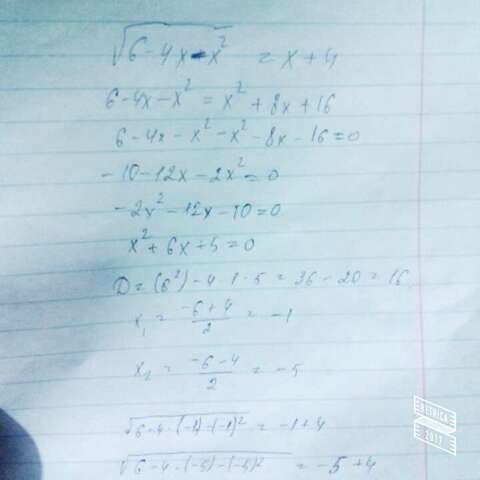 √(6-4x-x²) = x+4
6-4x-x² = x²+8x+16
6-4x-x²-x²-8x-16=0
-10-12x-2x²=0
-2x²-12x-10=0
x²+6x+5=0
D=(6²)-4·1·5=36-20=16
x₁ = (-6+4)/2 = -1
x₂ = (-6-4)/2 = -5
√(6-4·(-1)-(-1)² = -1+4
√(6-4·(-5)-(-5)² = -5+4
2017